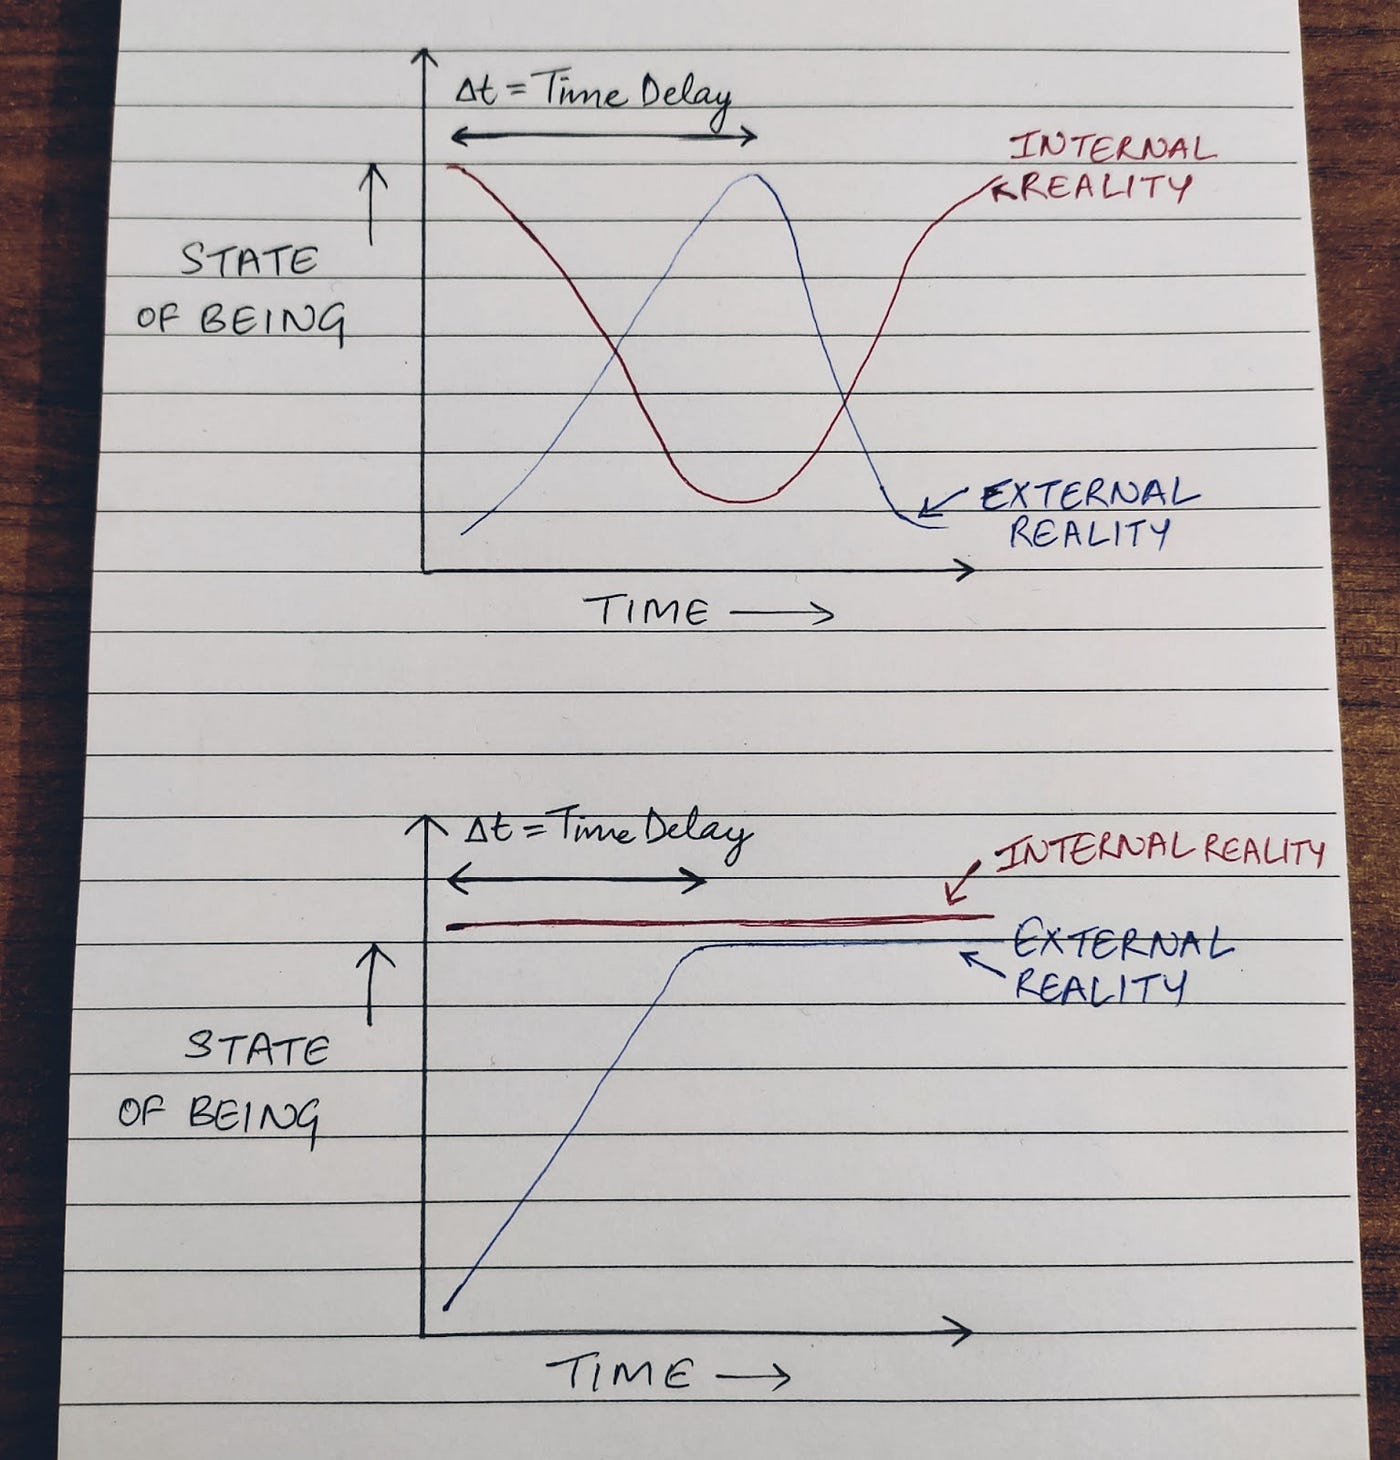 Δt = Time Delay
INTERNAL
REALITY
STATE
OF BEING
EXTERNAL
REALITY
TIME
Δt = Time Delay
INTERNAL REALITY
EXTERNAL
REALITY
STATE
OF BEING
TIME